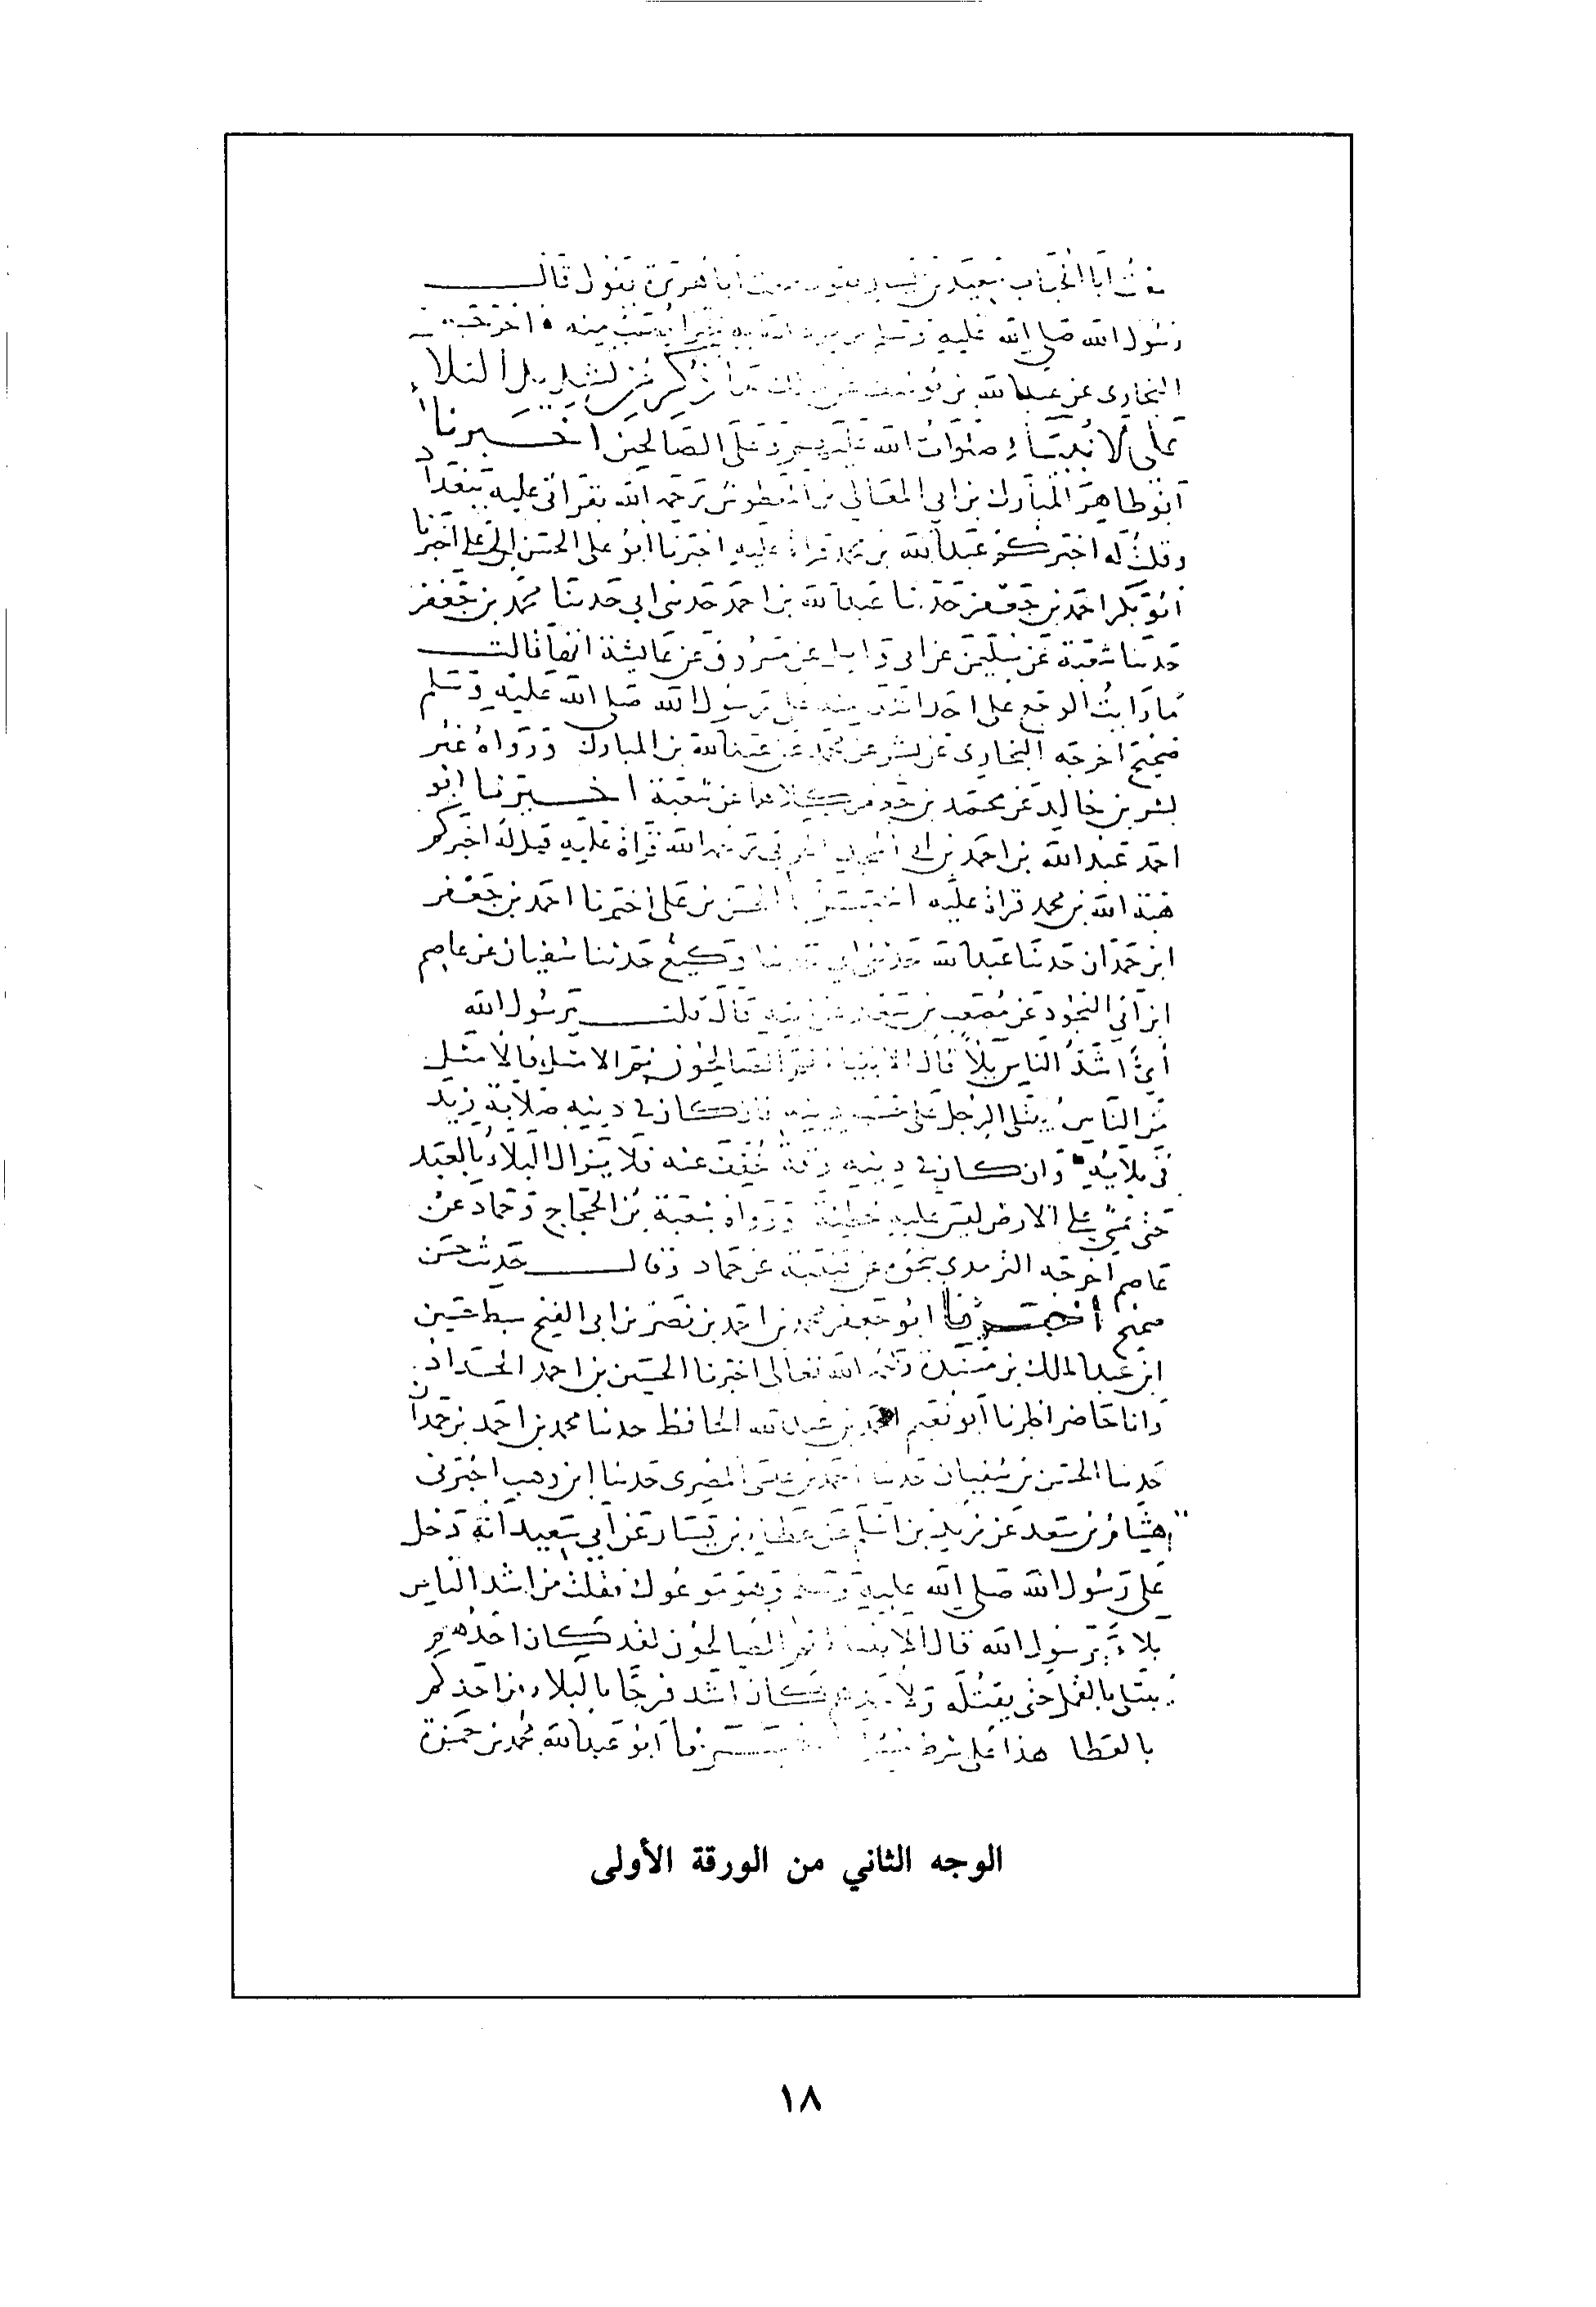 أبا الحباب سعيد بن يسار يقول أبا هريرة يقول قال
رسول الله صلى الله عليه وسلم من يرد الله به خيرا يصب منه اخرجه
البخاري عن عبد الله بن يوسف عن مالك ذكر تشديد البلاء
على الانبياء صلوات الله عليهم وعلى الصالحين اخبرنا
ابو طاهر المبارك بن ابي المعالي بن المعطوش رحمه الله بقراتي عليه ببغداد
وقلت له اخبركم عبد الله بن محمد قراة عليه اخبرنا ابو علي الحسن بن علي اخبرنا
ابو بكر احمد بن جعفر حدثنا عبد الله بن احمد حدثني ابي حدثنا محمد بن جعفر
حدثنا شعبة عن سليمن عن ابي وايل عن مسروق عن عايشة انها قالت
ما رايت الوجع على احد اشد منه على رسول الله صلى الله عليه وسلم
صحيح اخرجه البخاري عن بشر عن محمد عن عبد الله بن المبارك ورواه عن
بشر بن خالد عن محمد بن جعفر كلاهما عن شعبة اخبرنا ابو
احمد عبد الله بن احمد بن ابي المجد الحربي رحمه الله قراة عليه قيل له اخبركم
هبة الله بن محمد قراة عليه اخبرنا الحسن بن علي اخبرنا احمد بن جعفر
ابن حمدان حدثنا عبد الله حدثني ابي حدثنا وكيع حدثنا سفيان عن عاصم
ابن ابي النجود عن مصعب بن سعد عن ابيه قال قلت يرسول الله
أي اشد الناس بلاً قال الانبيا ثم الصالحون ثم الامثل فالامثل
من الناس يبتلى الرجل على حسب دينه فان كان في دينه صلابة زيد
في بلائه وان كان في دينه رقة خفف عنه فلا يزال البلاء بالعبد
حتى يمشي على الارض ليس عليه خطيئة ورواه شعبة بن الحجاج وحماد عن
عاصم اخرجه الترمذي بنحوه عن قتيبة عن حماد وقال حديث حسن
صحيح اخبرنا ابو جعفر محمد بن احمد بن نصر بن ابي الفتح سبط حسين
ابن عبد الملك بن مندة رحمه الله تعالى اخبرنا الحسن بن احمد الحداد
وانا حاضر اخبرنا ابو نعيم احمد بن عبد الله الحافظ حدثنا محمد بن احمد بن حمدان
حدثنا الحسن بن سفيان حدثنا احمد بن عيسى المصري حدثنا ابن وهب اخبرني
هشام بن سعد عن زيد بن اسلم عن عطاء بن يسار عن أبي سعيد انه دخل
على رسول الله صلى الله عليه وسلم وهو موعوك فقلت من اشد الناس
بلاءً يرسول الله قال الانبيا ثم الصالحون لقد كان احدهم
يبتلى بالقمل حتى يقتله ولاحدهم كان اشد فرحًا بالبلاء من احدكم
بالعطا هذا على شرط اخبرنا ابو عبد الله محمد بن حمزة
الوجه الثاني من الورقة الأولى
١٨